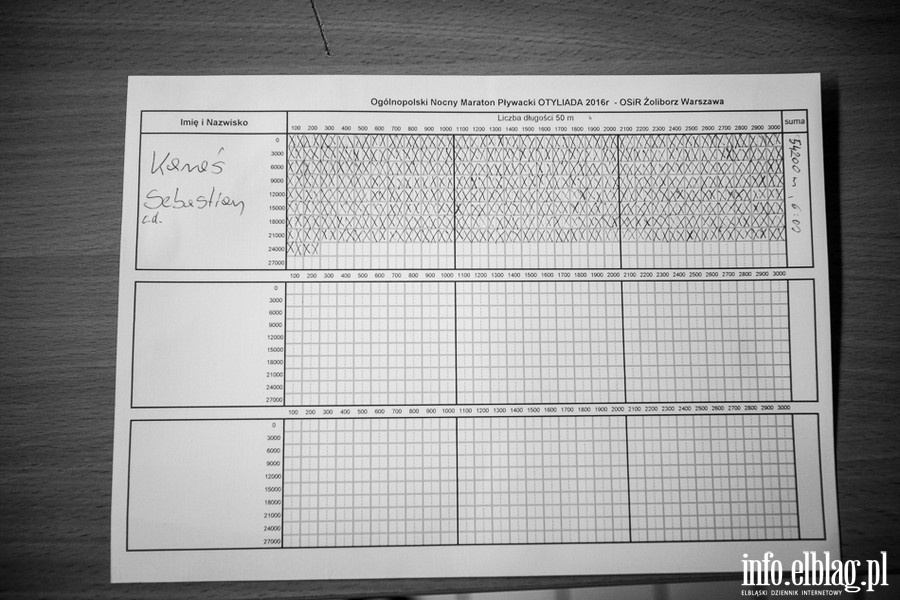 Ogólnopolski Nocny Maraton Pływacki OTYLIADA 2016r - OSiR Żoliborz Warszawa
Imię i Nazwisko
Liczba długości 50 m
suma
100 200 300 400 500 600 700 800 900 1000 1100 1200 1300 1400 1500 1600 1700 1800 1900 2000 2100 2200 2300 2400 2500 2600 2700 2800 2900 3000
Sebastian
c.d.
0
3000
6000
9000
12000
15000
18000
21000
24000
27000
54200 m, 6:00
100 200 300 400 500 600 700 800 900 1000 1100 1200 1300 1400 1500 1600 1700 1800 1900 2000 2100 2200 2300 2400 2500 2600 2700 2800 2900 3000
0
3000
6000
9000
12000
15000
18000
21000
24000
27000
100 200 300 400 500 600 700 800 900 1000 1100 1200 1300 1400 1500 1600 1700 1800 1900 2000 2100 2200 2300 2400 2500 2600 2700 2800 2900 3000
0
3000
6000
9000
12000
15000
18000
21000
24000
27000
info.elblag.pl
ELBLĄSKI DZIENNIK INTERNETOWY